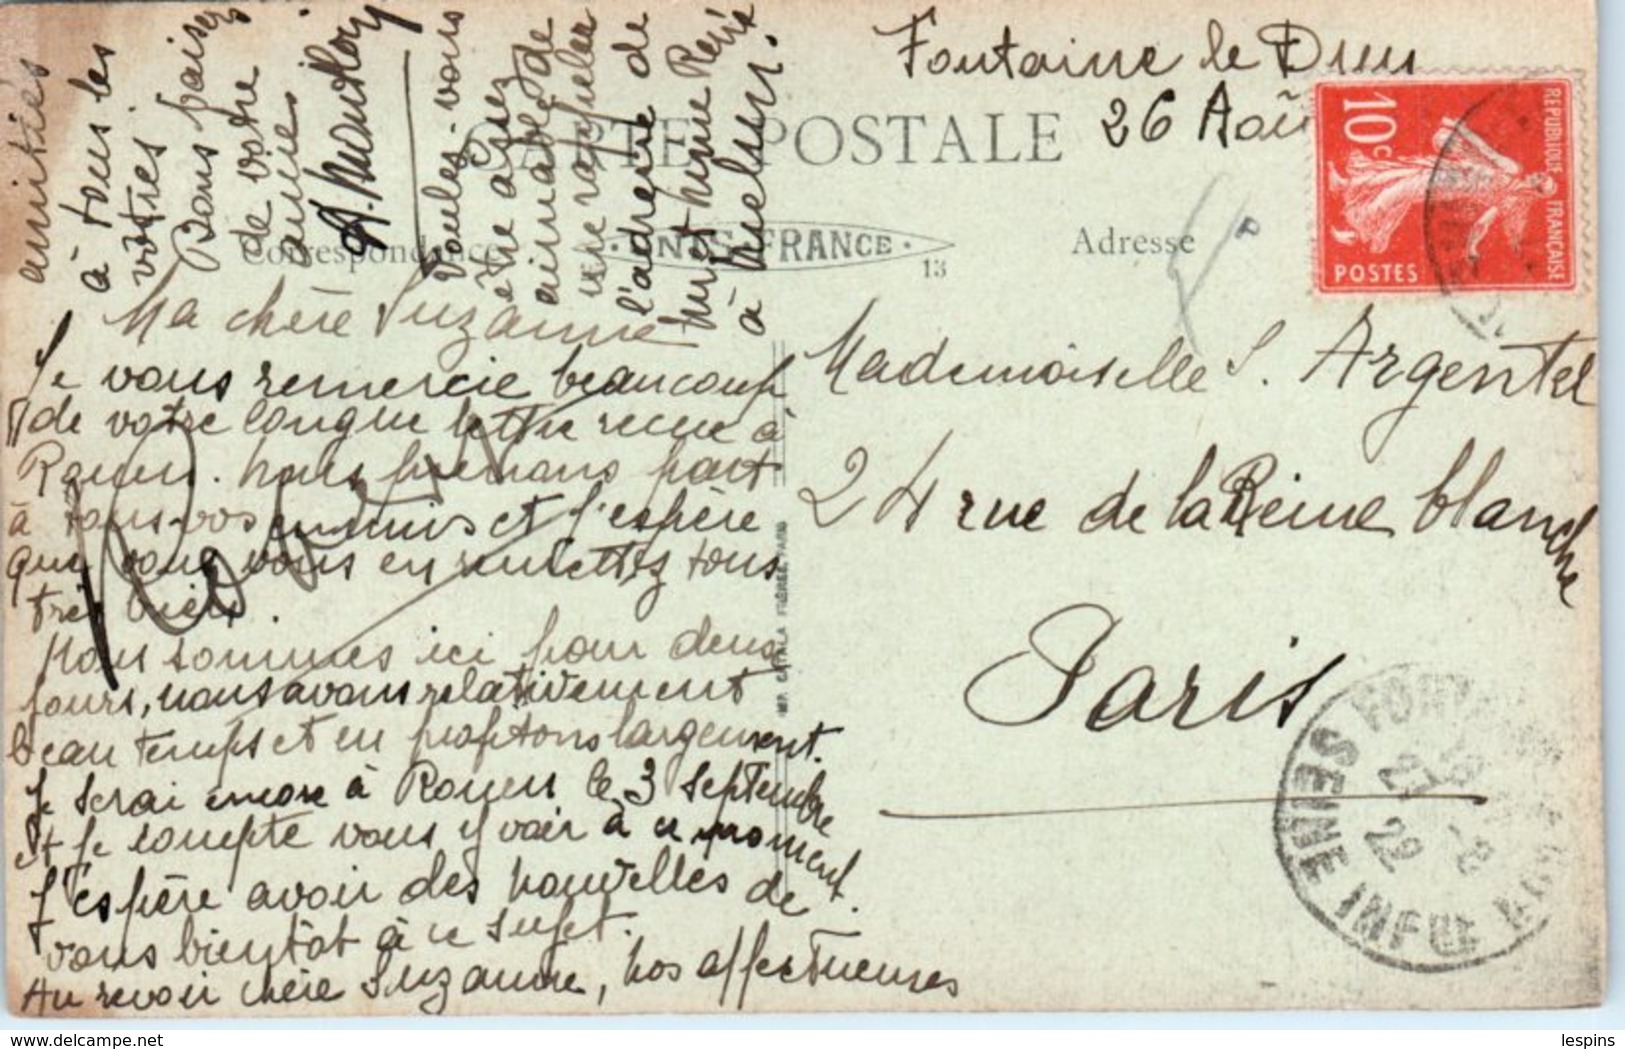 Fontaine le Dun
26 Aoû
CARTE POSTALE
Correspondance
UNIS FRANCE
13
Adresse
REPUBLIQUE FRANÇAISE
10c
POSTES
Mademoiselle S. Argentel
24 rue de la Reine blanche
Paris
Ma chère Suzanne
Je vous remercie beaucoup
de votre longue lettre reçue à
Rouen. Nous prenons part
à tous vos ennuis et j'espère
que vous vous en remettez tous
très bien.
Nous sommes ici pour deux
jours, nous avons relativement
beau temps et en profitons largement.
Je serai encore à Rouen le 3 Septembre
et je compte vous y voir à ce moment.
J'espère avoir des nouvelles de
vous bientôt à ce sujet.
Au revoir chère Suzanne, nos affectueuses
amitiés
à tous les
vôtres.
Bons baisers
de votre
amie
Voulez-vous
être assez
aimable de
me rappeler
l'adresse de
René
à Melun.
SEINE INFRE
27
22
lespins_